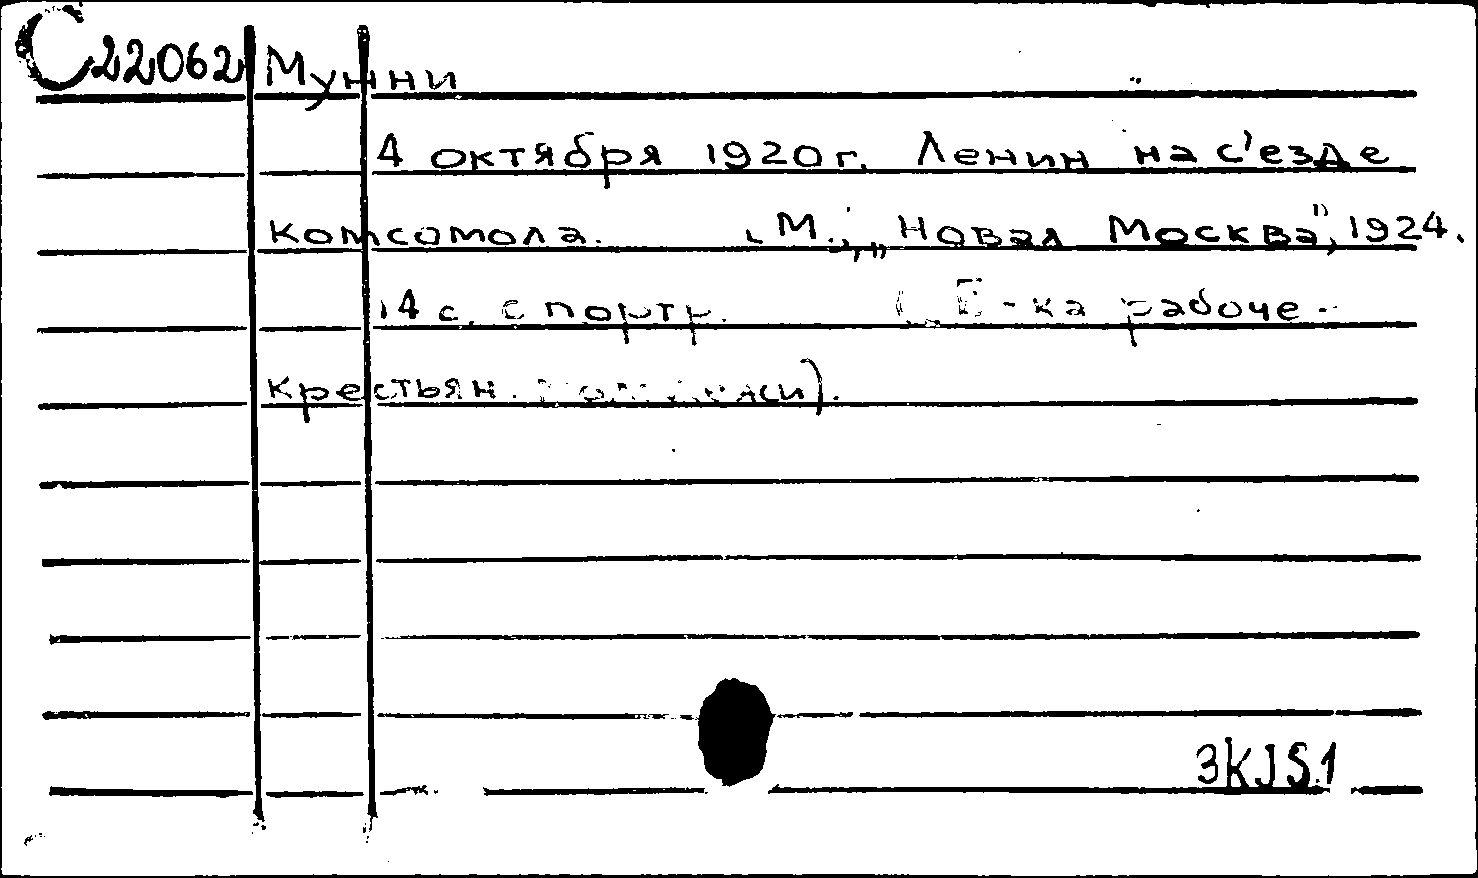 С22062 Мунни
4 октября 1920 г. Ленин на с'езде
комсомола. М., „Новая Москва", 1924.
14 с. с портр. (Б-ка рабоче-
крестьян. молодежи).
3KJS1